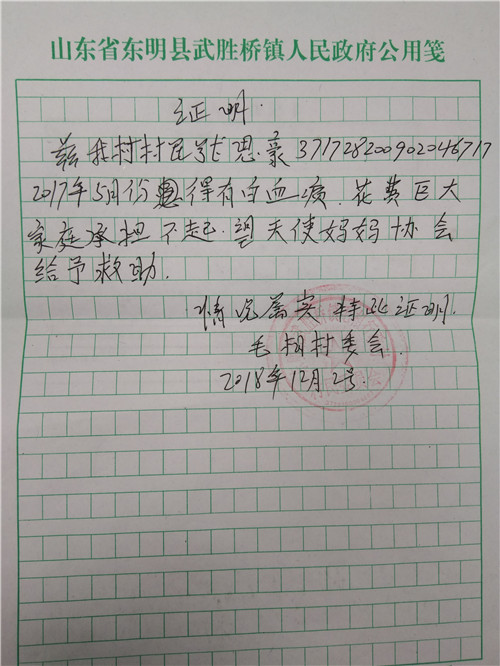 山东省东明县武胜桥镇人民政府公用笺
证明.
兹我村村民张思豪371728200902046717
2017年5月份患得有白血病.花费巨大
家庭承担不起.望天使妈妈协会
给予救助.
情况属实 特此证明.
毛相村委会.
2018年12月2号.